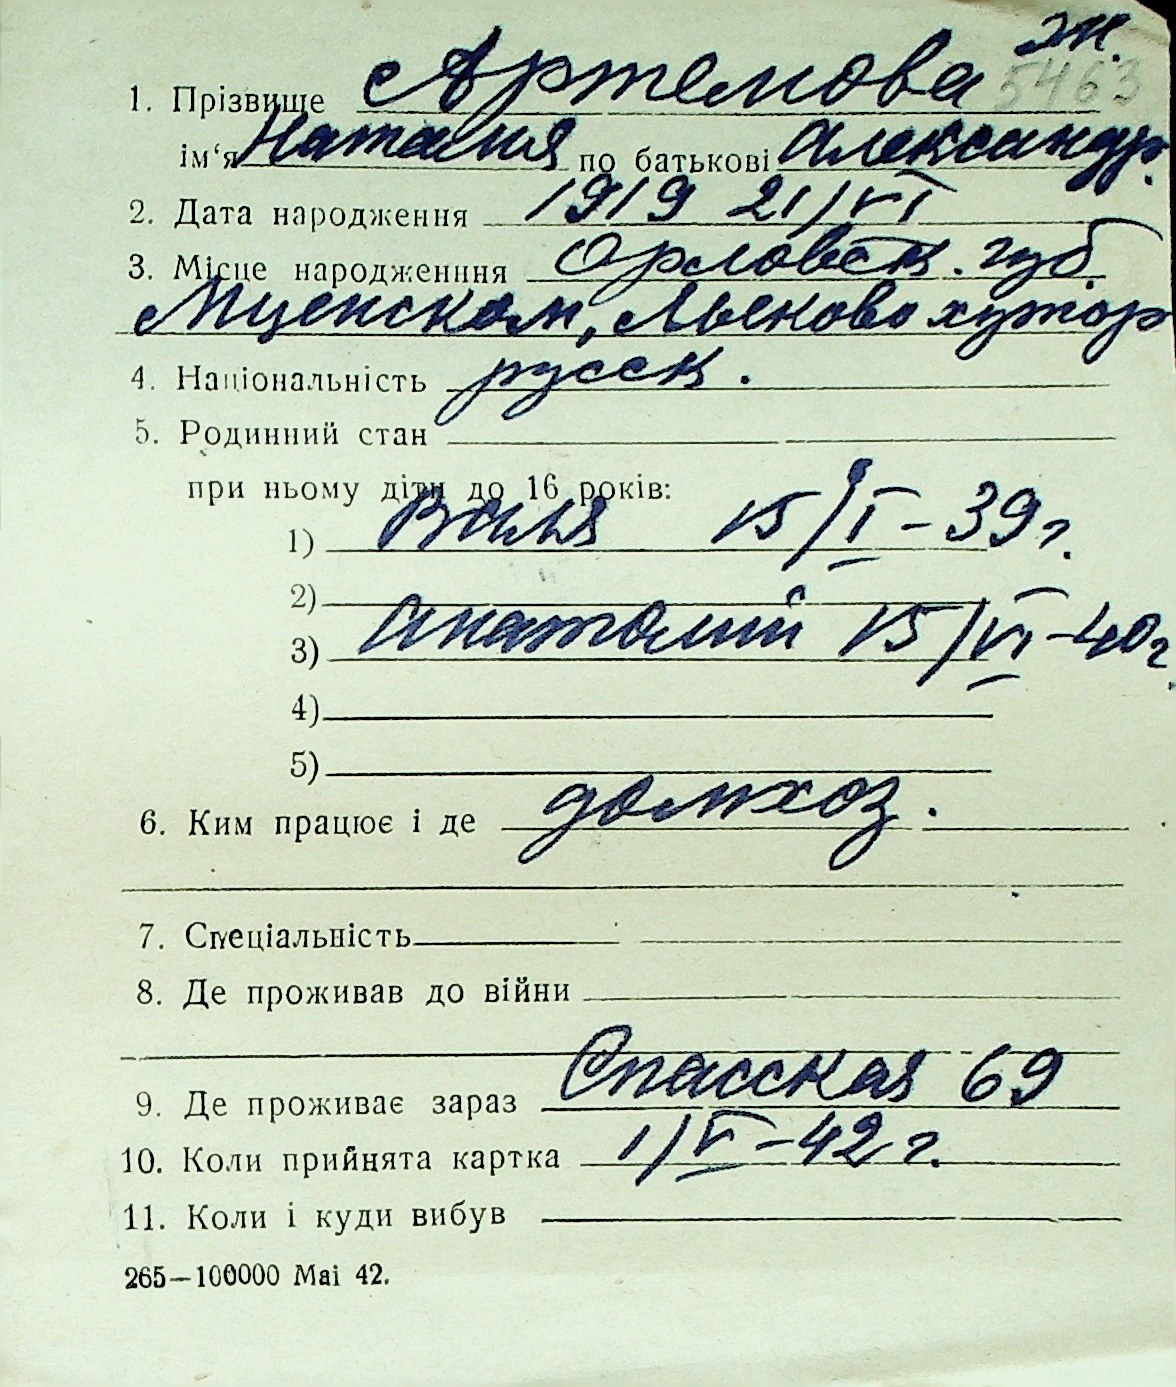 эк.
5463
1. Прізвище Артемова
ім'я Наталия по батькові Александр.
2. Дата народження 1919 21/VI
3. Місце народженння Орловск. губ.
Мценском, Льеково хутор
4. Національність русск.
5. Родинний стан
при ньому діти до 16 років:
1) Валя 15/I-39 г.
2)
3) Анатолий 15/VI-40 г.
4)
5)
6. Ким працює і де домхоз.
7. Спеціальність
8. Де проживав до війни
9. Де проживає зараз Спасская 69
10. Коли прийнята картка 1/V-42 г.
11. Коли і куди вибув
265—100000 Mai 42.